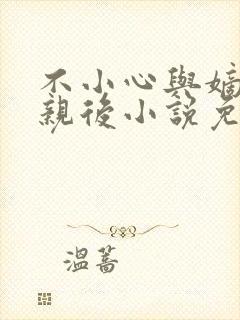 不小心與嫡
親後小說免
溫蒿